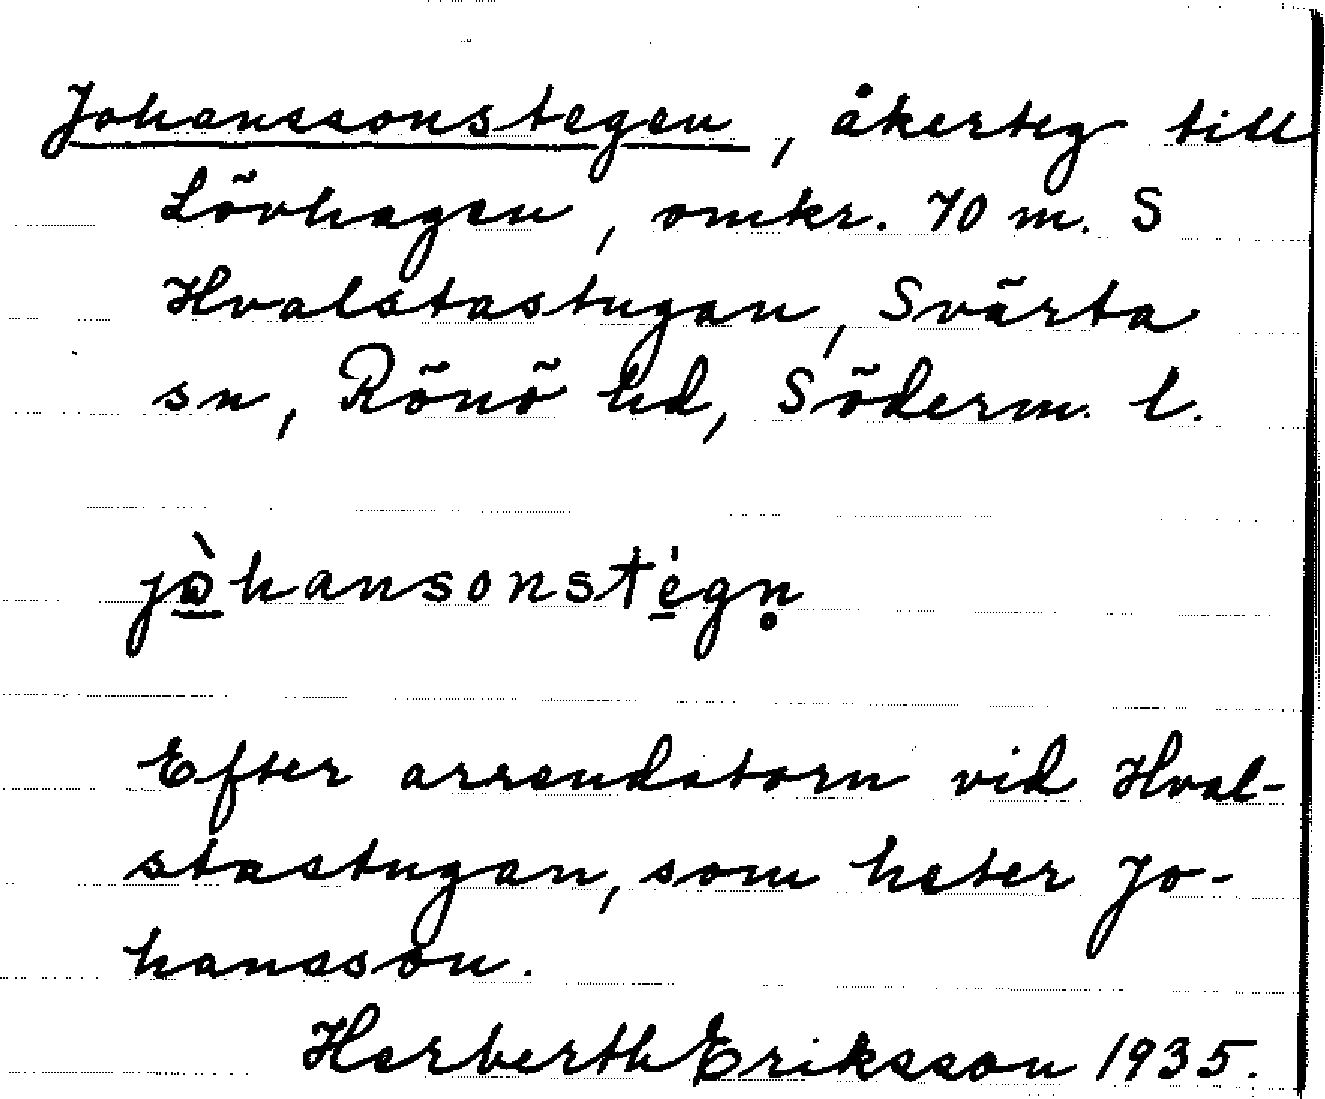 Johanssonstegen, åkerteg till
Lövhagen, omkr. 70 m. S
Hvalstastugan, Svärta
sn, Rönö hd, Söderm. l.
jò̱hansonsté̱gn̥
Efter arrendatorn vid Hval-
stastugan, som heter Jo-
hansson.
Herberth Eriksson 1935.